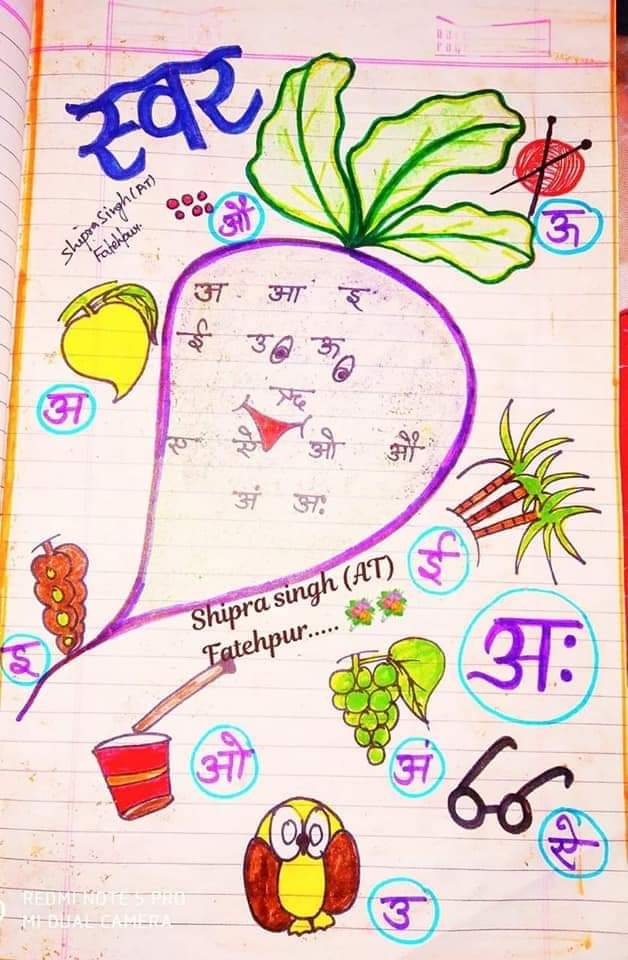 स्वर
Shipra Singh (AT)
Fatehpur.
औ
ऊ
अ आ इ
ई उ ऊ
ऋ
ए ऐ ओ औ
अं अः
अ
ई
Shipra singh (AT)
Fatehpur.....
इ
अः
ओ
अं
ऐ
उ
REDMI NOTE 5 PRO
MI DUAL CAMERA